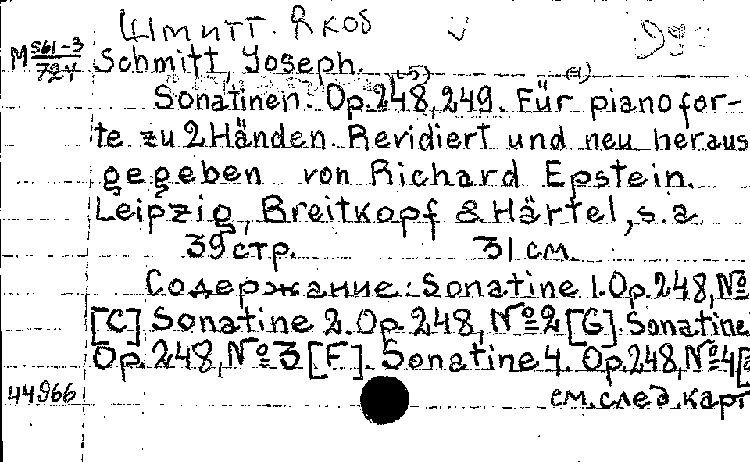 Шмитт. Якоб
М 561-3/724 Schmitt, Joseph.
Sonatinen. Op. 248, 249. Für pianofor-
te zu 2 Händen. Revidiert und neu heraus
gegeben von Richard Epstein.
Leipzig, Breitkopf & Härtel, s. a
39 стр. 31 см
Содержание: Sonatine 1. Op. 248, №
[C] Sonatine 2. Op. 248, № 2 [G]. Sonatine
Op. 248, № 3 [F]. Sonatine 4. Op. 248, № 4 [
44966 см. след. карт